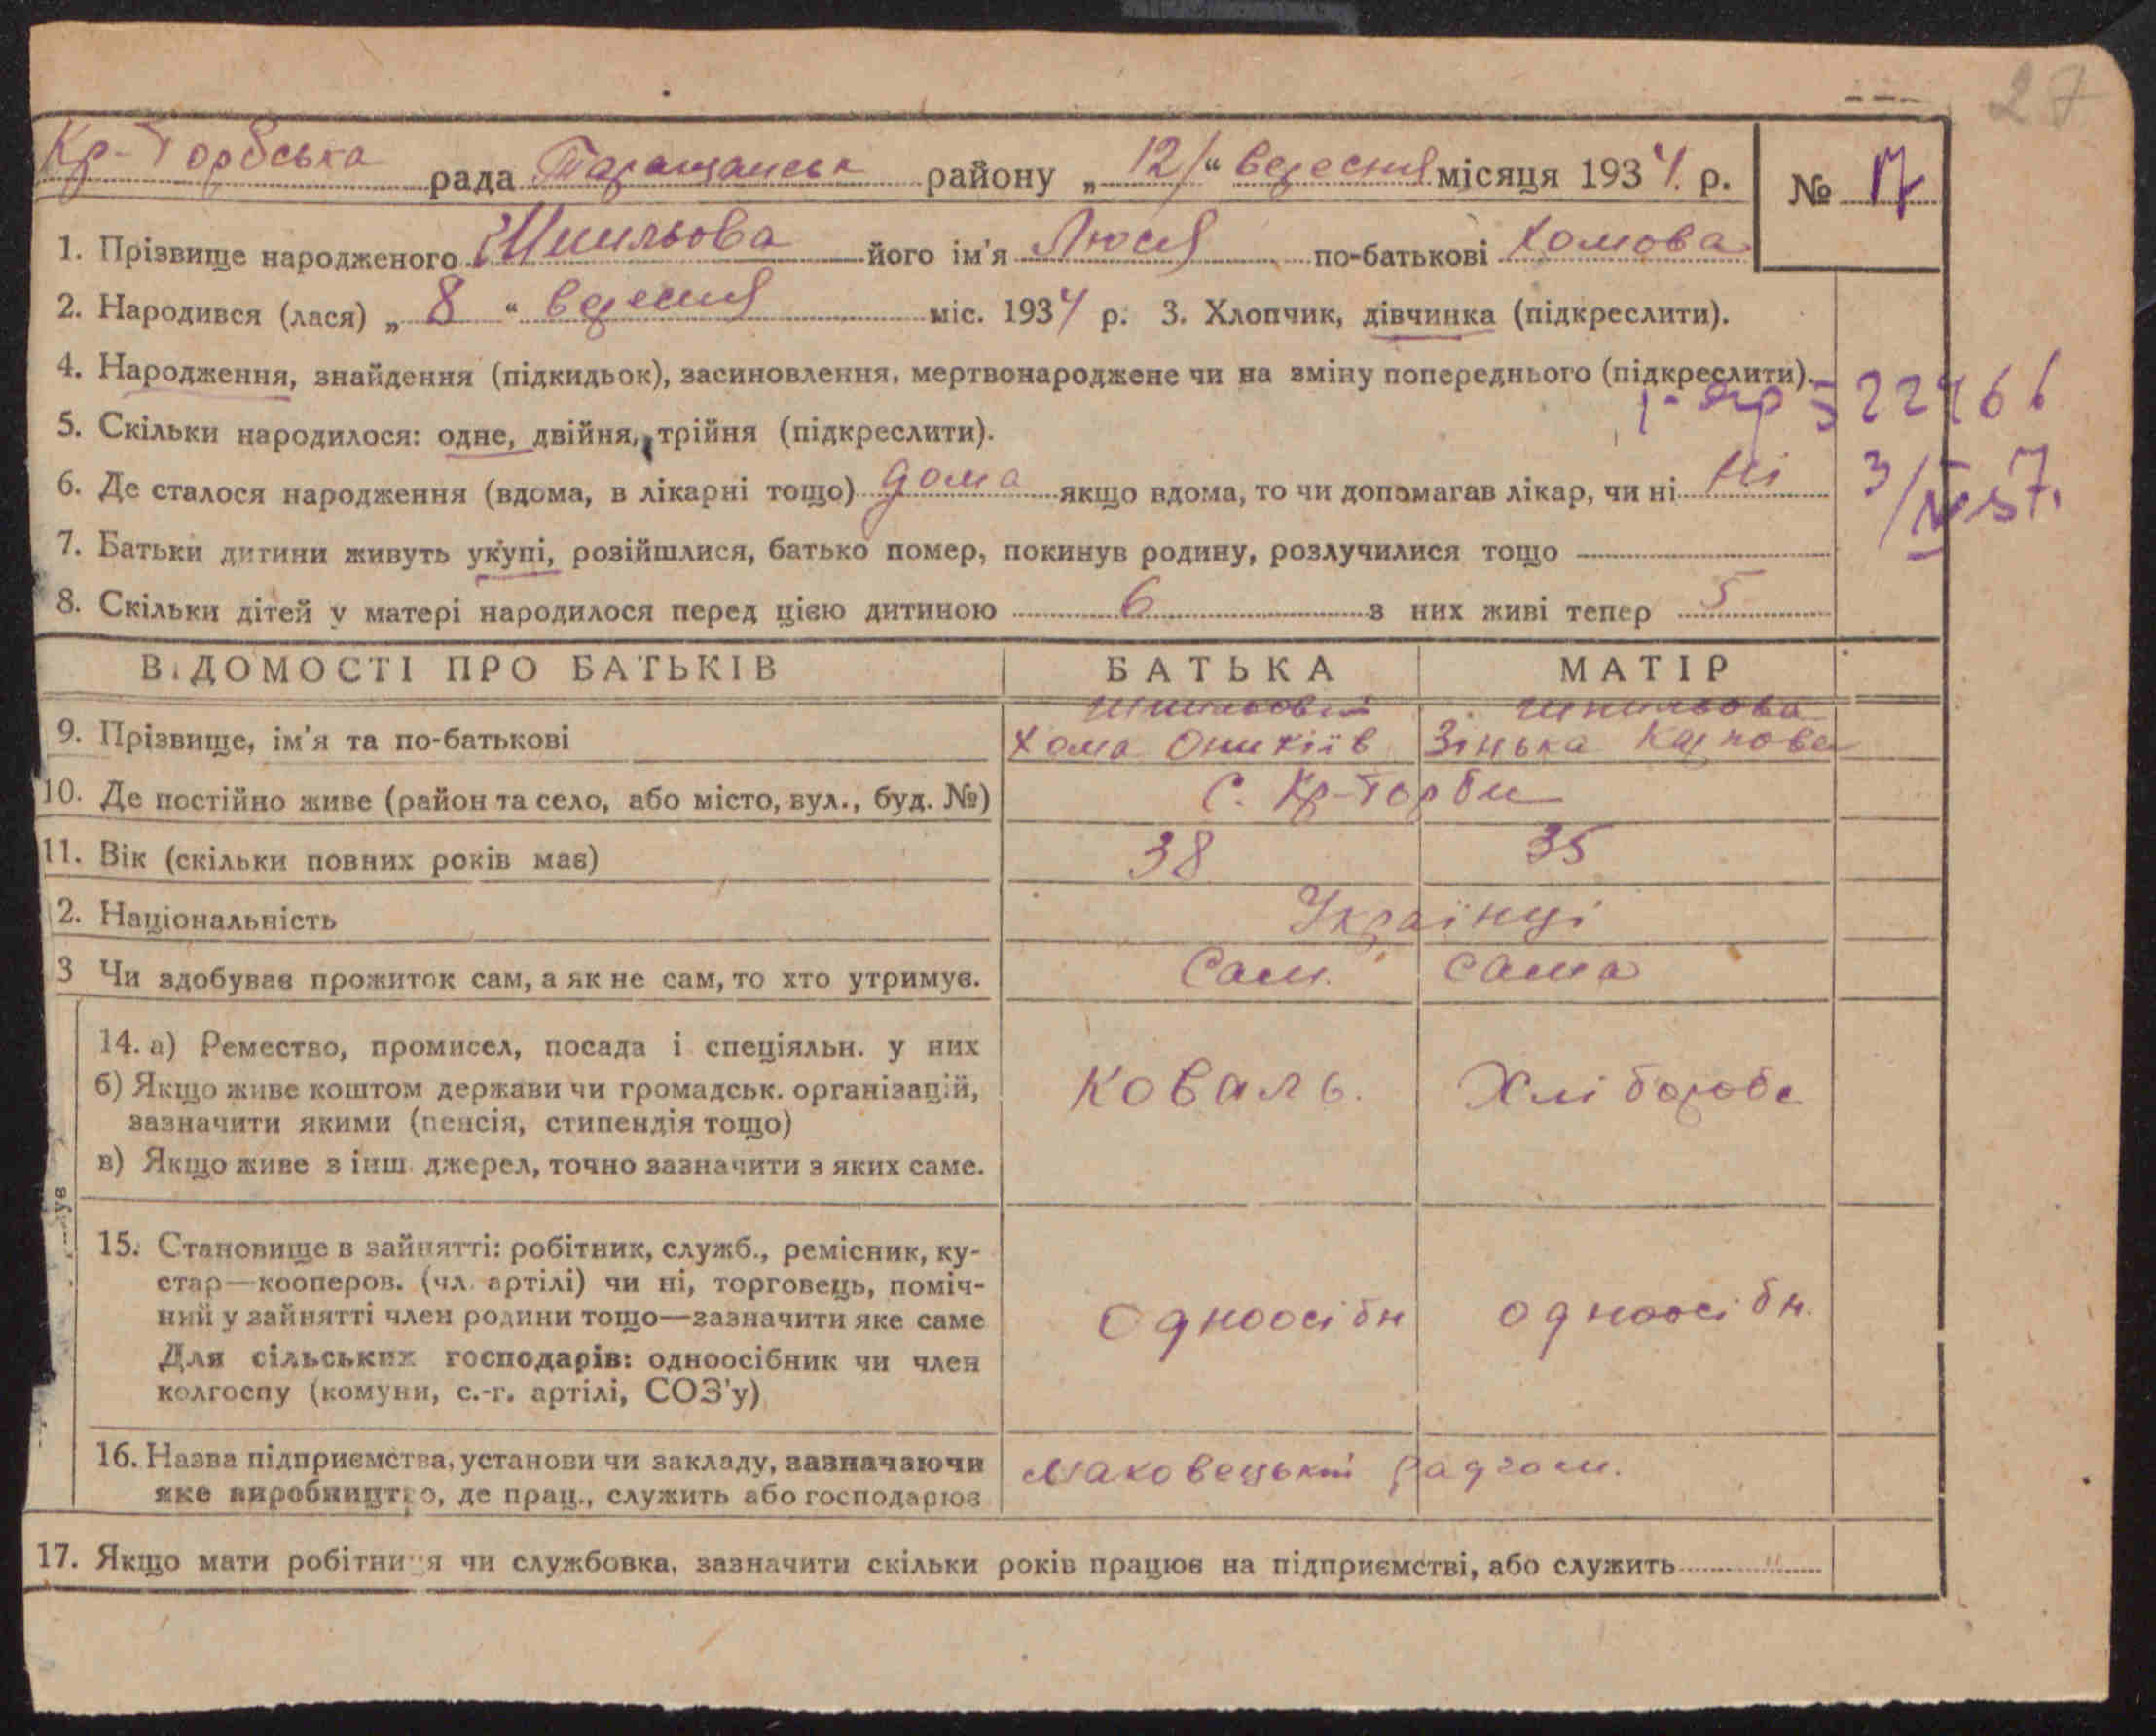 27
Кр-Торбська рада Таращанськ району „12/“ вересня місяця 1934. р. № 17
1. Прізвище народженого Шпильова його ім'я Люся по-батькові Хомова
2. Народився (лася) „ 8 “ вересня міс. 1934 р. 3. Хлопчик, дівчинка (підкреслити).
4. Народження, знайдення (підкидьок), засиновлення, мертвонароджене чи на зміну попереднього (підкреслити).
522466
5. Скільки народилося: одне, двійня, трійня (підкреслити).
6. Де сталося народження (вдома, в лікарні тощо) дома якщо вдома, то чи допомагав лікар, чи ні Ні
7. Батьки дитини живуть укупі, розійшлися, батько помер, покинув родину, розлучилися тощо
8. Скільки дітей у матері народилося перед цією дитиною 6 з них живі тепер 5
ВІДОМОСТІ ПРО БАТЬКІВ БАТЬКА МАТІР
Шпильовий Шпильова
9. Прізвище, ім'я та по-батькові Хома Оникіїв Зінька Карпова
10. Де постійно живе (район та село, або місто, вул., буд. №) С. Кр-Торби
11. Вік (скільки повних років має) 38 35
2. Національність Українці
3 Чи здобуває прожиток сам, а як не сам, то хто утримує. Сам. сама
14. а) Ремество, промисел, посада і спеціяльн. у них
б) Якщо живе коштом держави чи громадськ. організацій, Коваль. Хлібороб
зазначити якими (пенсія, стипендія тощо)
в) Якщо живе з інш. джерел, точно зазначити з яких саме.
15. Становище в зайнятті: робітник, служб., ремісник, ку-
стар—кооперов. (чл. артілі) чи ні, торговець, поміч-
ний у зайнятті член родини тощо—зазначити яке саме одноосібн одноосібн.
Для сільських господарів: одноосібник чи член
колгоспу (комуни, с.-г. артілі, СОЗ'у)
16. Назва підприємства, установи чи закладу, зазначаючи Маковецький радгосп.
яке виробництво, де прац., служить або господарює
17. Якщо мати робітниця чи службовка, зазначити скільки років працює на підприємстві, або служить "